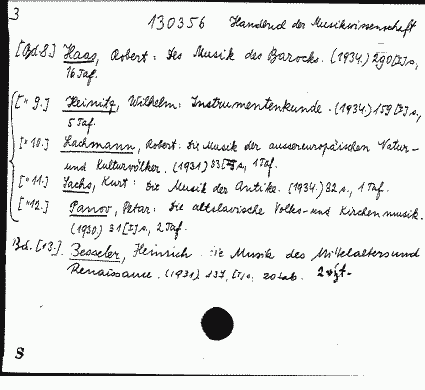 3
130356 Handbuch der Musikwissenschaft
[Bd.8.] Haas, Robert: Die Musik des Barocks. (1934.) 290 [2] s,
16 Taf.
[" 9.] Heinitz, Wilhelm: Instrumentenkunde. (1934.) 159 [2] s,
5 Taf.
[" 10.] Lachmann, Robert: Die Musik der aussereuropäischen Natur-
und Kulturvölker. (1931) 33 s, 1 Taf.
[" 11.] Sachs, Kurt: Die Musik der Antike. (1934.) 32 s, 1 Taf.
["12.] Panov, Petar: Die altslavische Volks- und Kirchenmusik.
(1930) 31 [2] s, 2 Taf.
Bd. [13.] Besseler, Heinrich: Die Musik des Mittelalters und
Renaissance. (1931) 337, 20 tab.
8